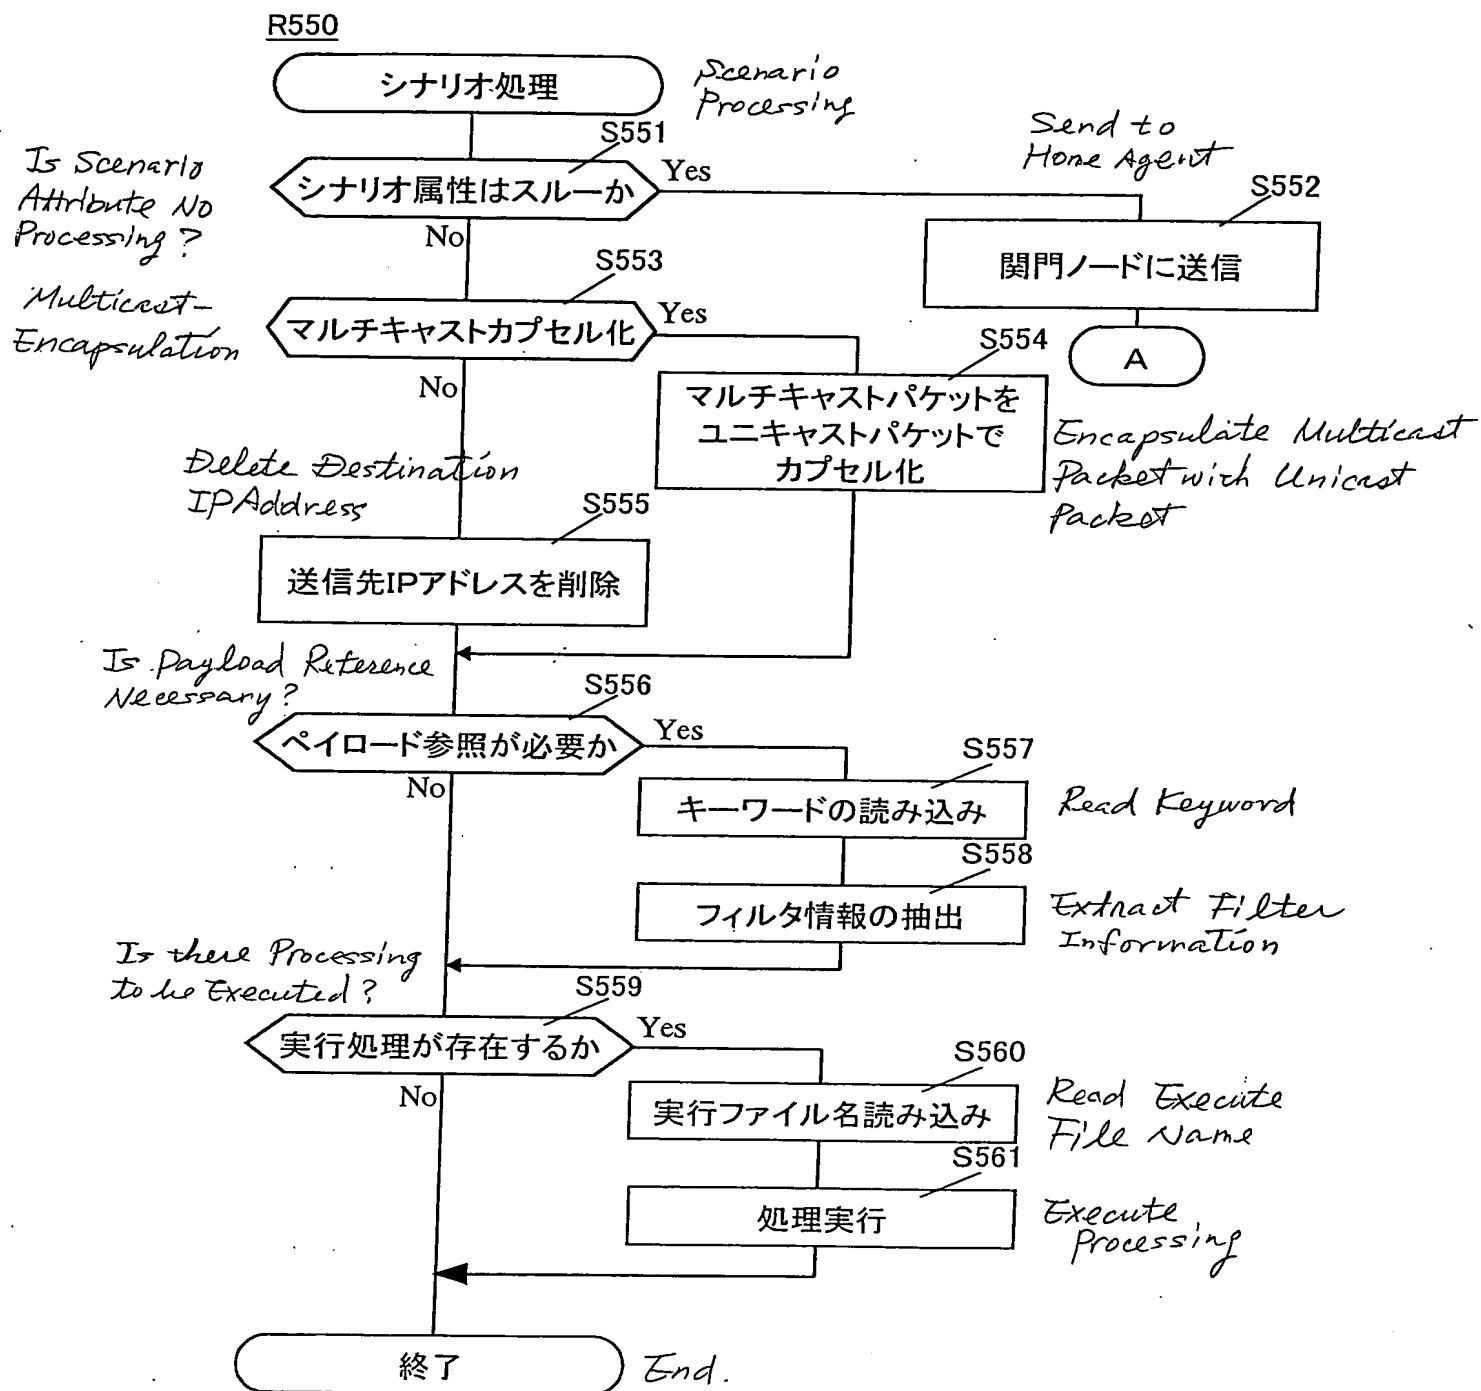 R550
シナリオ処理
Scenario
Processing
S551
Is Scenario
Attribute No
Processing?
シナリオ属性はスルーか
Yes
No
Send to
Home Agent
S552
関門ノードに送信
A
S553
Multicast-
Encapsulation
マルチキャストカプセル化
Yes
No
S554
マルチキャストパケットを
ユニキャストパケットで
カプセル化
Encapsulate Multicast
Packet with Unicast
Packet
Delete Destination
IP Address
S555
送信先IPアドレスを削除
Is Payload Reference
Necessary?
S556
ペイロード参照が必要か
Yes
No
S557
キーワードの読み込み
Read Keyword
S558
フィルタ情報の抽出
Extract Filter
Information
Is there Processing
to be Executed?
S559
実行処理が存在するか
Yes
No
S560
実行ファイル名読み込み
Read Execute
File Name
S561
処理実行
Execute
Processing
終了
End.